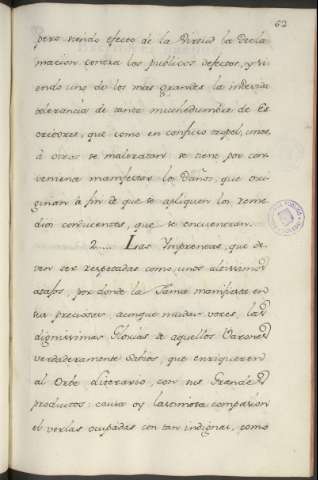 62
pero siendo efecto de la Virtud la Decla
macion contra los publicos defectos, y si
endo uno de los mas grandes la indevida
tolerancia de tanta muchedumbre de Es
critores, que como en confuso tropel, unos
à otros se maltratan se tiene por con
veniente manifestar los Daños, que ori
ginan à fin de que se apliquen los reme
dios conducentes, que se encuentran.
2..... Las Imprentas, que de
ven ser respetadas como unos
por donde la Fama manifiesta en
sus preciosas, aunque mudas voces, las
dignissimas Glorias de aquellos Varones
verdaderamente sabios, que enriquecen
al Orbe Literario, con sus Grandes
productos: causa oy lastimosa compasion
el verlas ocupadas con tan indignas, como